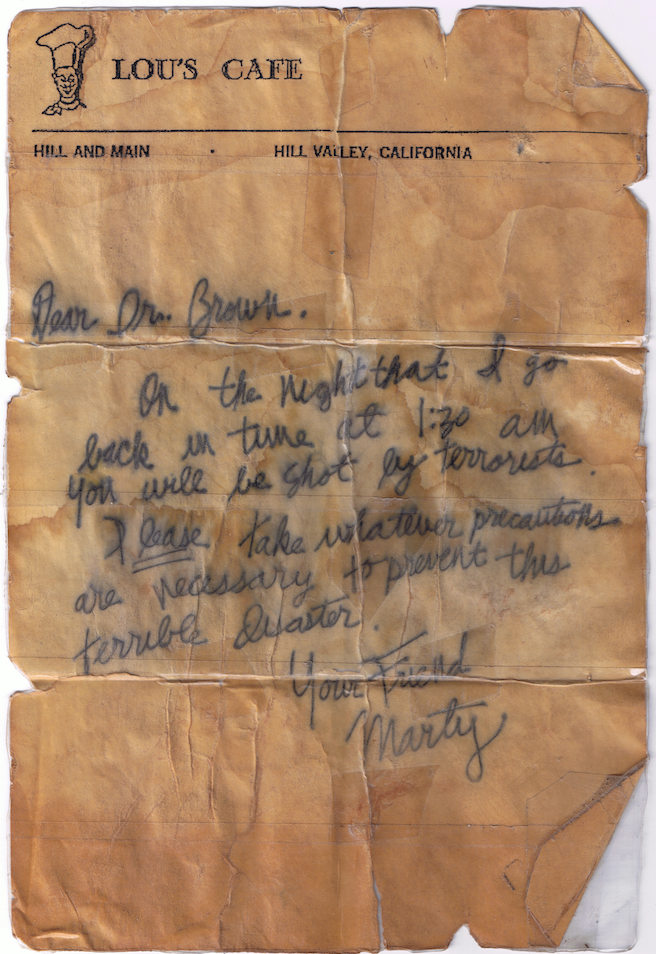 LOU'S CAFE
HILL AND MAIN · HILL VALLEY, CALIFORNIA
Dear Dr. Brown.
On the night that I go
back in time at 1:30 am
you will be shot by terrorists.
Please take whatever precautions
are necessary to prevent this
terrible disaster.
Your Friend
Marty